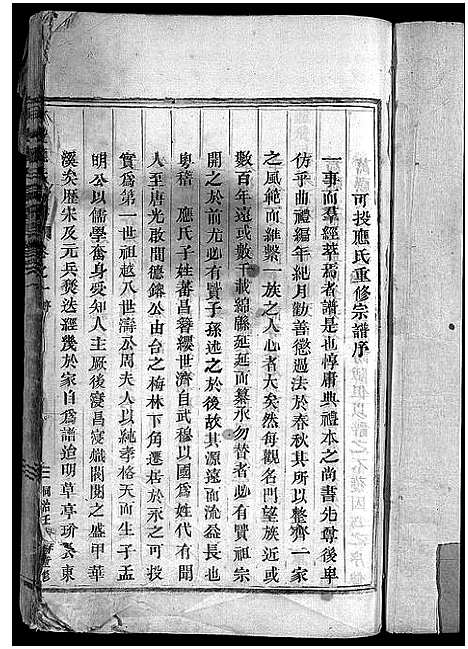 可投應氏重修宗譜序
一事而羣經萃焉者譜是也惇庸典禮本之尚書先尊後卑
仿乎曲禮編年紀月勸善懲過法於春秋其所以整齊一家
之風範而維繫一族之人心者大矣然每觀名門望族近或
數百年遠或數千載綿縣延延而纂承勿替者必有賢祖宗
開之於前尤必有賢子孫述之於後故其源遠而流益長也
粤稽應氏子姓蕃昌簪纓世濟自武穆以國爲姓代有聞
人至唐光啟間德鎔公由台之梅林下角遷居於永之可投
實爲第一世祖越八世濤公周夫人以純孝格天而生子孟
明公以儒學奮身受知人主厥後寖昌寖熾閥閱之盛甲華
溪矣歷宋及元兵燹迭經幾於家自爲譜迨明草亭玠 東
同治壬